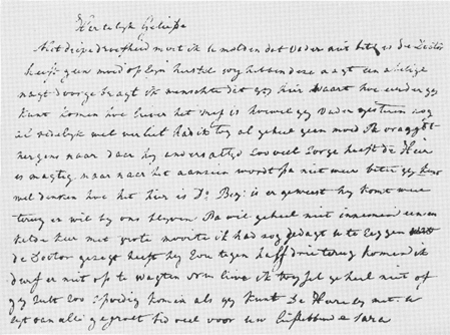 Hertelijk Geliefde
Met diepe droefheid moet ik u melden dat Vader niet beter is de Doctor
heeft geen moed op zijn herstel wy hebben deze nagt een akelige
nagt doorgebragt ik wenschte dat gy hier waart hoe eerder gy
kunt komen hoe liever het was is hoewel gy Vader gisteren nog
al redelyk wel verliet had ik tog al geheel geen moed Ik vraagt
nergens naar daar hy anders altyd zoo veel zorge heeft de Heer
is magtig maar naar het aanzien wordt pa niet meer beter gy kunt
wel denken hoe het hier is Ds is er geweest hy komt weer
terug en wil by ons blyven Pa wil geheel niet innemen een en
kelde keer met grote moeite ik had nog gedagt te zeggen
de Doctor gezegt heeft hy zou tegen half drie terug komen ik
durf er niet op te wagten lieve ik twyfel geheel niet of
gy zult zoo spoedig komen als gy kunt de Heere zy met u
zyt van alle gegroet bid veel voor uw liefhebbende Sara